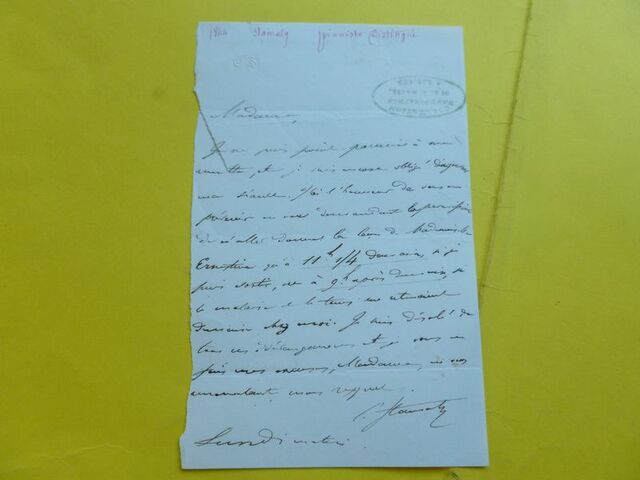 1844 Stamaty pianiste Distingué
Madame,
Je ne puis point parvenir à me
et je suis encore obligé d'ajourner
ma séance. J'ai l'honneur de vous en
prévenir en vous demandant la permission
de n'aller donner la leçon de Mademoiselle
Ernestine qu'à 11h 1/4 demain si je
puis sortir, ou à 9h après demain, si
le malaise et le temps me
demain chez moi. Je suis désolé de
tous ces dérangements et je vous en
fais mes excuses, Madame, en vous
mon respect.
C. Stamaty
Lundi matin.